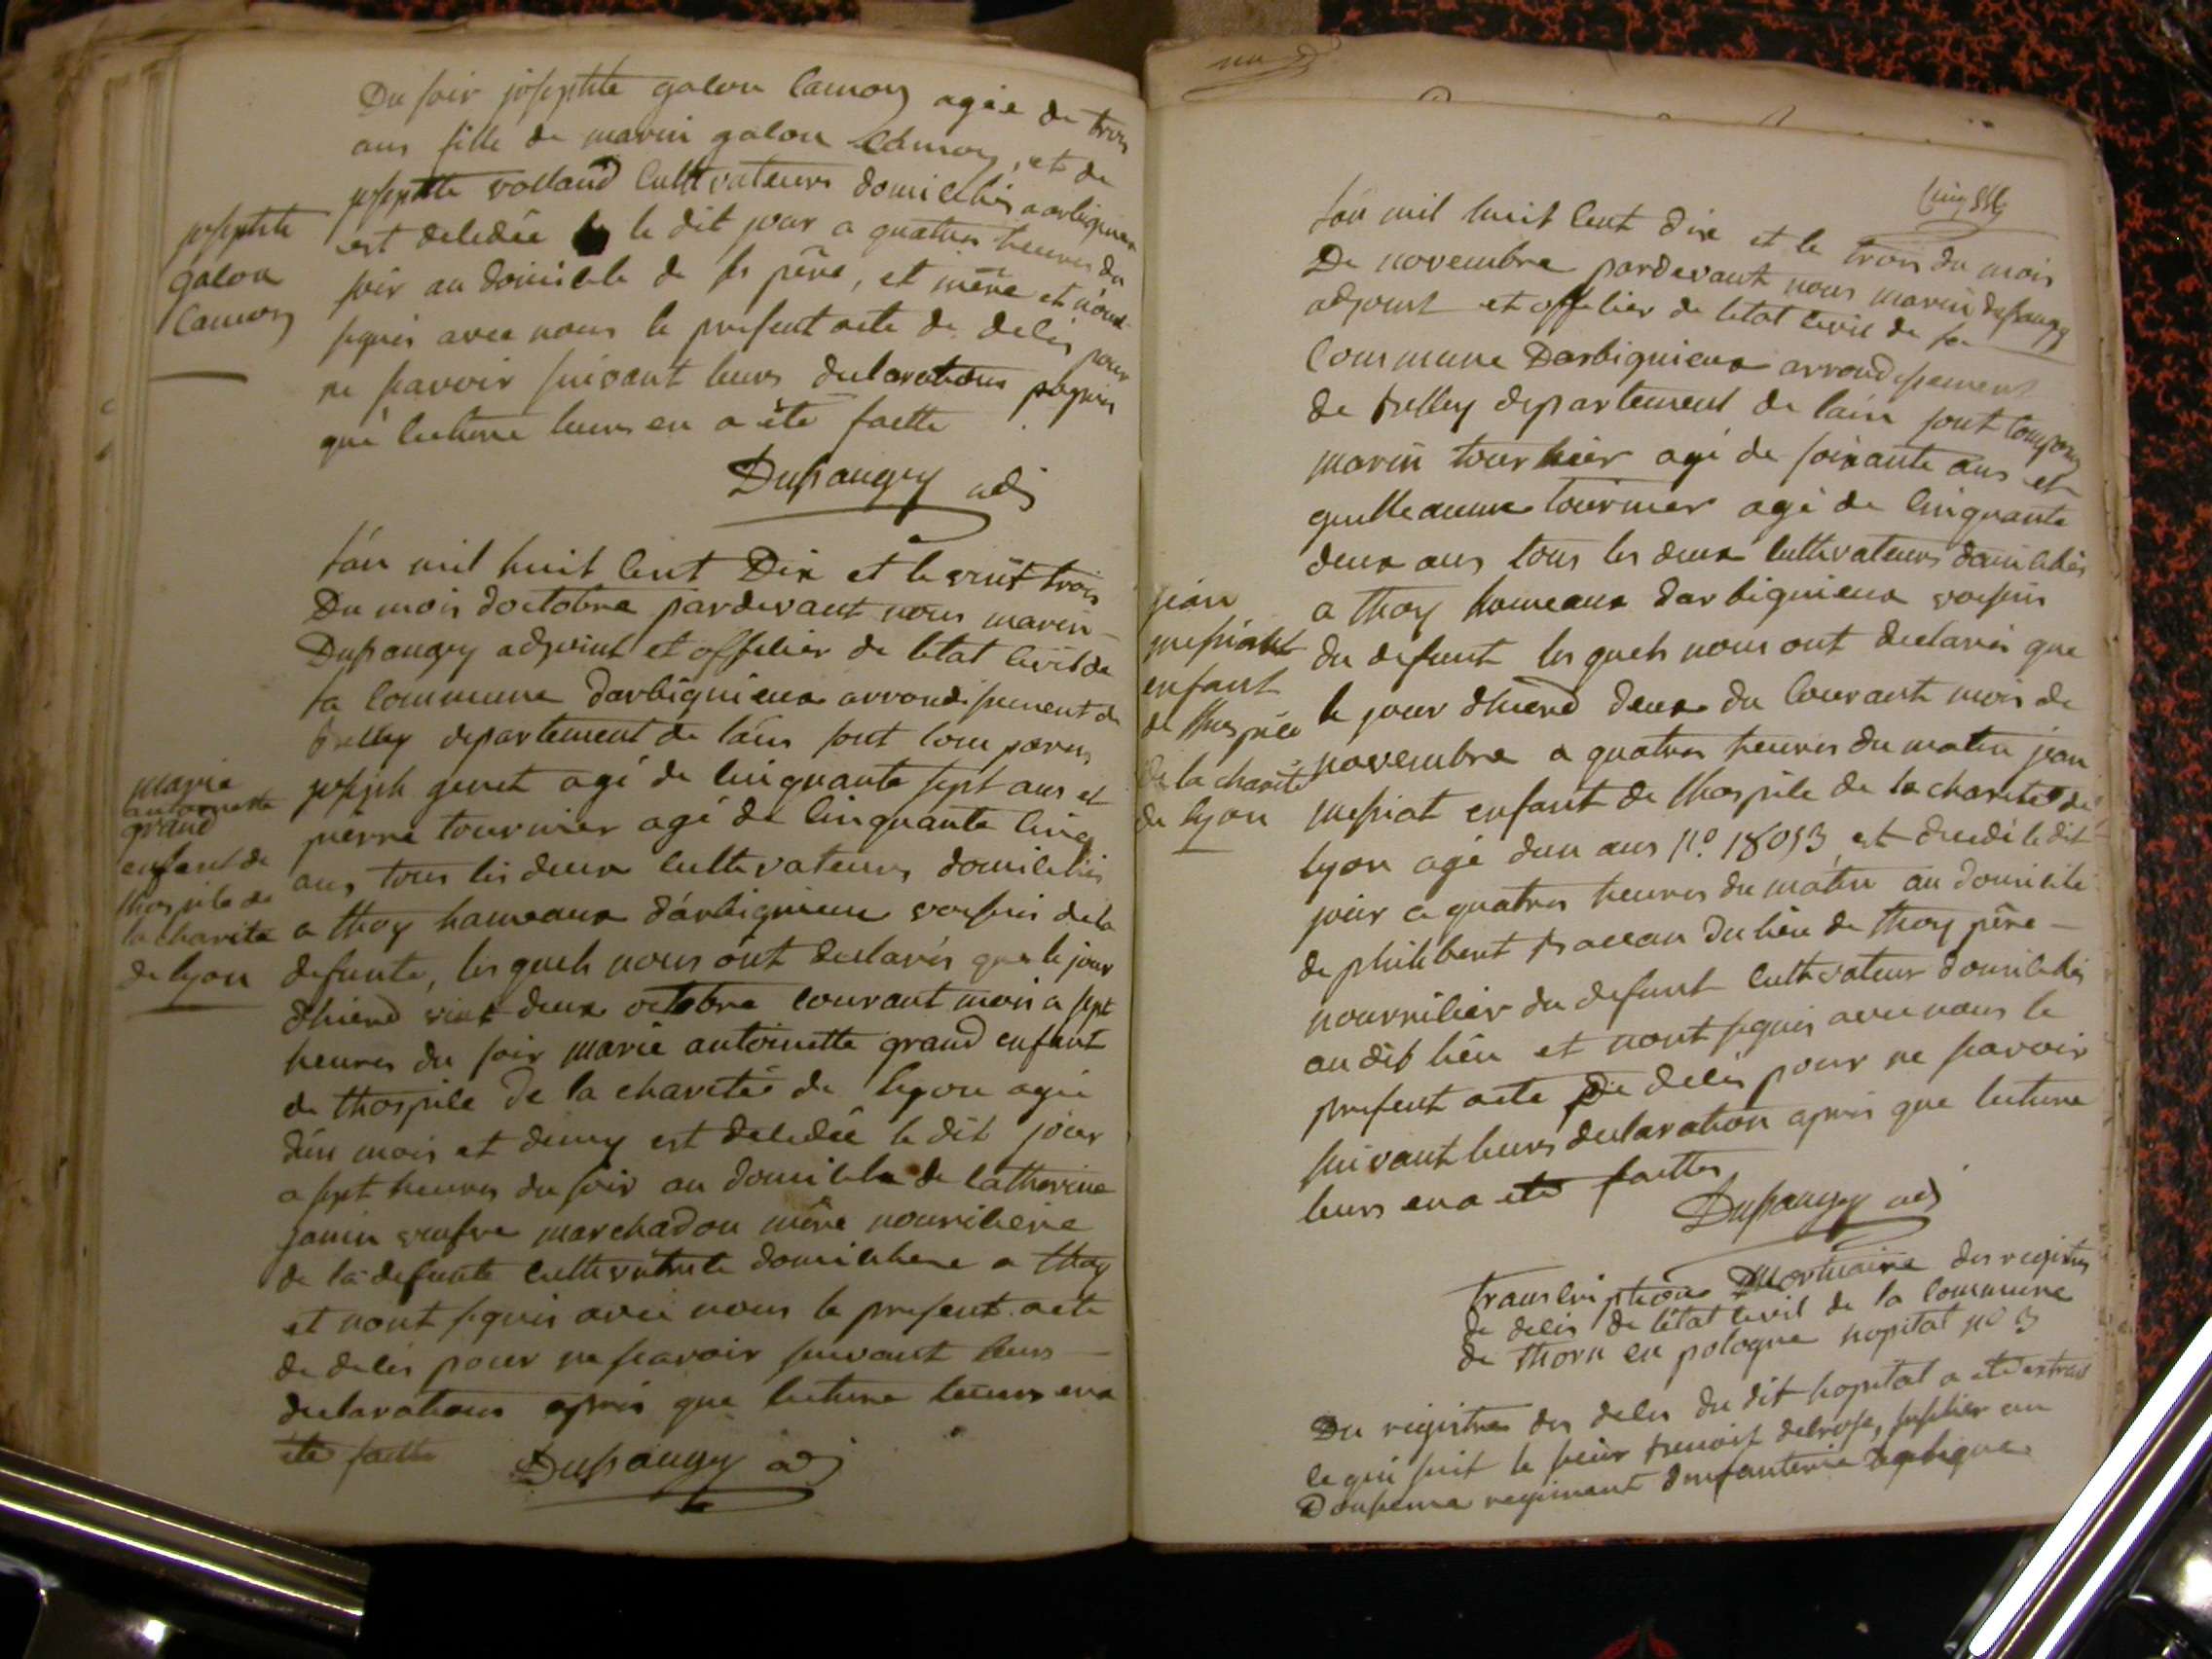 Du soir josephte galon Camon agée de trois
ans fille de marin galon Camon, et de
josephte volland Cultivateurs domiciliés a arbignieu
est decedée le dit jour a quatres heures du
soir au domicile de ses père, et mère et nont
signés avec nous le present acte de decés pour
ne savoir suivant leurs declarations
que lecture leurs en a été faitte
josephte
galon
Camon
Dupaugey adj
lán mil huit Cent Dix et le vint trois
Du mois doctobre pardevant nous marin
Dupaugey adjoint et officier de létat Civil de
la Commune darbignieux arrondissement de
Belley departement de lain sont Comparus
joseph genet agé de Cinquante sept ans et
pierre tournier agé de Cinquante Cinq
ans, tous les deux Cultivateurs domiciliés
a thoy hameaux dárbignieux voisins de la
defunte, les quels nous ont declarés que le jour
dhierd vint deux octobre Courant mois a sept
heures du soir marie antoinette grand enfant
de lhospice De la charité de lyon agée
dún mois et demy est decedée le dit jour
a sept heures du soir au domicile de Catherine
janin veufve marchadon mère nouriciere
de la defunte Cultivatrice domiciliere a thoy
et nont signés avec nous le present acte
de decés pour ne savoir suivant leurs
declarations aprés que lecture leurs en a
été faitte
Dupaugey adj
marie
antoinette
grand
enfant de
lhospice de
la charité
de lyon
lán mil huit Cent dix et le trois du mois
De novembre pardevant nous marin dupaugey
adjoint et officier de létat Civil de la
Commune Darbignieux arrondissement
de belley departement de lain sont Comparus
marin tournier agé de soixante ans et
guilleaume tournier agé de Cinquante
deux ans tous les deux Cultivateurs domiciliés
a thoy hameaux darbignieux voisins
du defunt les quels nous ont declarés que
le jour dhierd deux du Courant mois de
novembre a quatres heures du matin jean
messiat enfant de lhospice de la charité de
lyon agé dun ans no. 18053 est decedé le dit
jour a quatres heures du matin au domicile
de philibert du lieu de thoy père
nourricier du defunt Cultivateur domiciliés
au dit lieu et nont signés avec nous le
present acte De decés pour ne savoir
suivant leurs declaration aprés que lecture
leurs en a été faittes
Dupaugey adj
jean
messiat
enfant
de lhospice
de la charité
de lyon
transcription Mortuaire des registres
de decés de létat Civil de la Commune
de thorn en pologne hopital no 3
Du registres des decés du dit hopital a eté extrait
Ce qui suit le sieur benoit delrose, fusilier au
Douzieme regiment dinfanterie de ligne